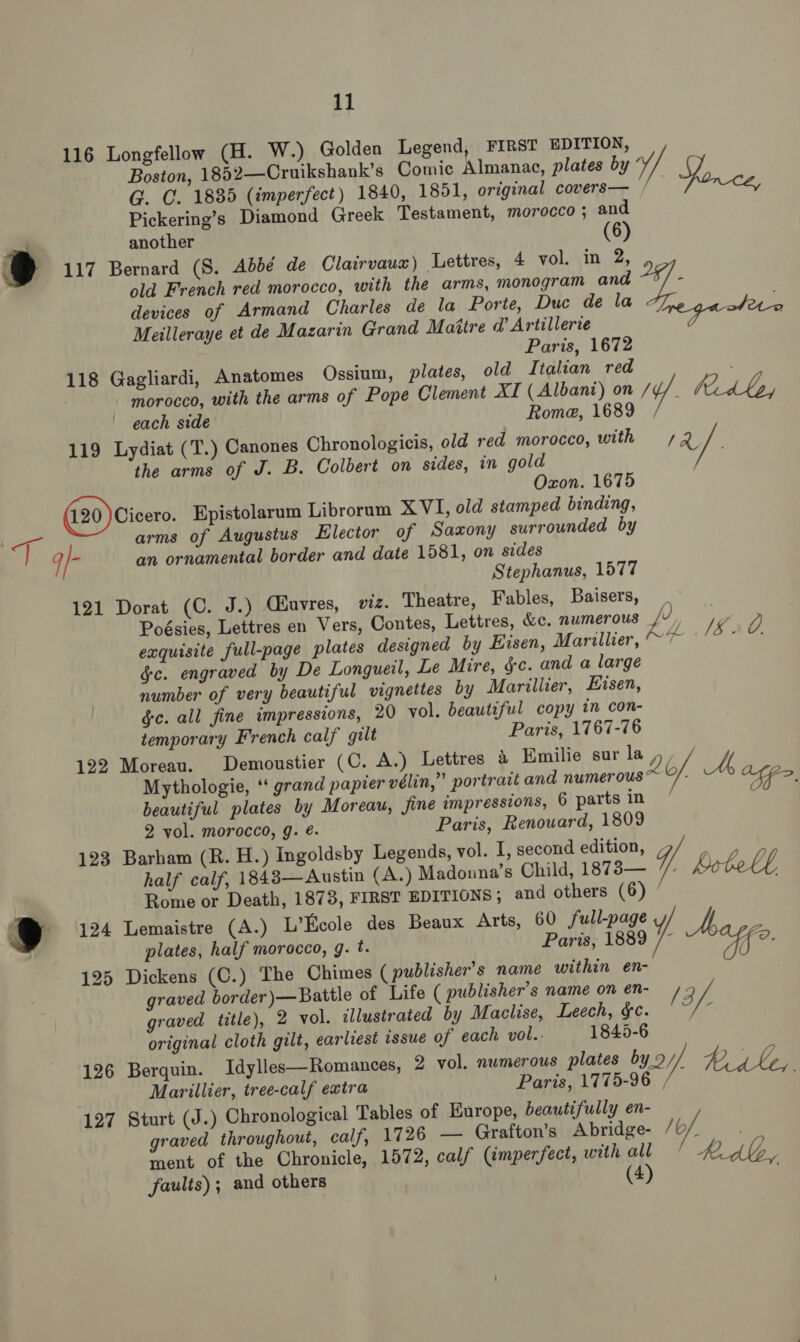 11
116 Longfellow (H. W.) Golden Legend, FIRST EDITION,
Boston, 1852—Cruikshank's Comic Almanac, plates by
G. C. 1835 (imperfect) 1840, 1851, original covers—
Pickering's Diamond Greek Testament, morocco; and
another (6)
117 Bernard (S. Abbé de Clairvaux) Lettres, 4 vol. in 2,
old French red morocco, with the arms, monogram and
devices of Armand Charles de la Porte, Duc de la
Meilleraye et de Mazarin Grand Maître d'Artillerie
Paris, 1672
118 Gagliardi, Anatomes Ossium, plates, old Italian red
morocco, with the arms of Pope Clement XI (Albani) on 14/- Ridley
each side Romæ, 1689
119 Lydiat (T.) Canones Chronologicis, old red morocco, with 12/-
the arms of J. B. Colbert on sides, in gold
Oxon. 1675
120 Cicero. Epistolarum Librorum XVI, old stamped binding,
arms of Augustus Elector of Saxony surrounded by
T 9/- an ornamental border and date 1581, on sides
Stephanus, 1577
121 Dorat (C. J.) Œuvres, viz. Theatre, Fables, Baisers,
Poésies, Lettres en Vers, Contes, Lettres, &c. numerous
exquisite full-page plates designed by Eisen, Marillier,
&c. engraved by De Longueil, Le Mire, &c. and a large
number of very beautiful vignettes by Marillier, Eisen,
&c. all fine impressions, 20 vol. beautiful copy in con-
temporary French calf gilt Paris, 1767-76
122 Moreau. Demoustier (C. A.) Lettres à Emilie sur la
Mythologie, "grand papier vélin," portrait and numerous 26/- Maggs.
beautiful plates by Moreau, fine impressions, 6 parts in
2 vol. morocco, g. e. Paris, Renouard, 1809
123 Barham (R. H.) Ingoldsby Legends, vol. I, second edition,
half calf, 1843—Austin (A.) Madonna's Child, 1873— 9/- Dobell.
Rome or Death, 1873, FIRST EDITIONS; and others (6)
124 Lemaistre (A.) L'École des Beaux Arts, 60 full-page
plates, half morocco, g. t. Paris, 1889 Maggs.
125 Dickens (C.) The Chimes (publisher's name within en-
graved border)—Battle of Life (publisher's name on en-
graved title), 2 vol. illustrated by Maclise, Leech, &c. 13/-
original cloth gilt, earliest issue of each vol. 1845-6
126 Berquin. Idylles—Romances, 2 vol. numerous plates by 21/- Ridley.
Marillier, tree-calf extra Paris, 1775-96
127 Sturt (J.) Chronological Tables of Europe, beautifully en-
graved throughout, calf, 1726 — Grafton's Abridge- 16/-
ment of the Chronicle, 1572, calf (imperfect, with all Ridley.
faults); and others (4)